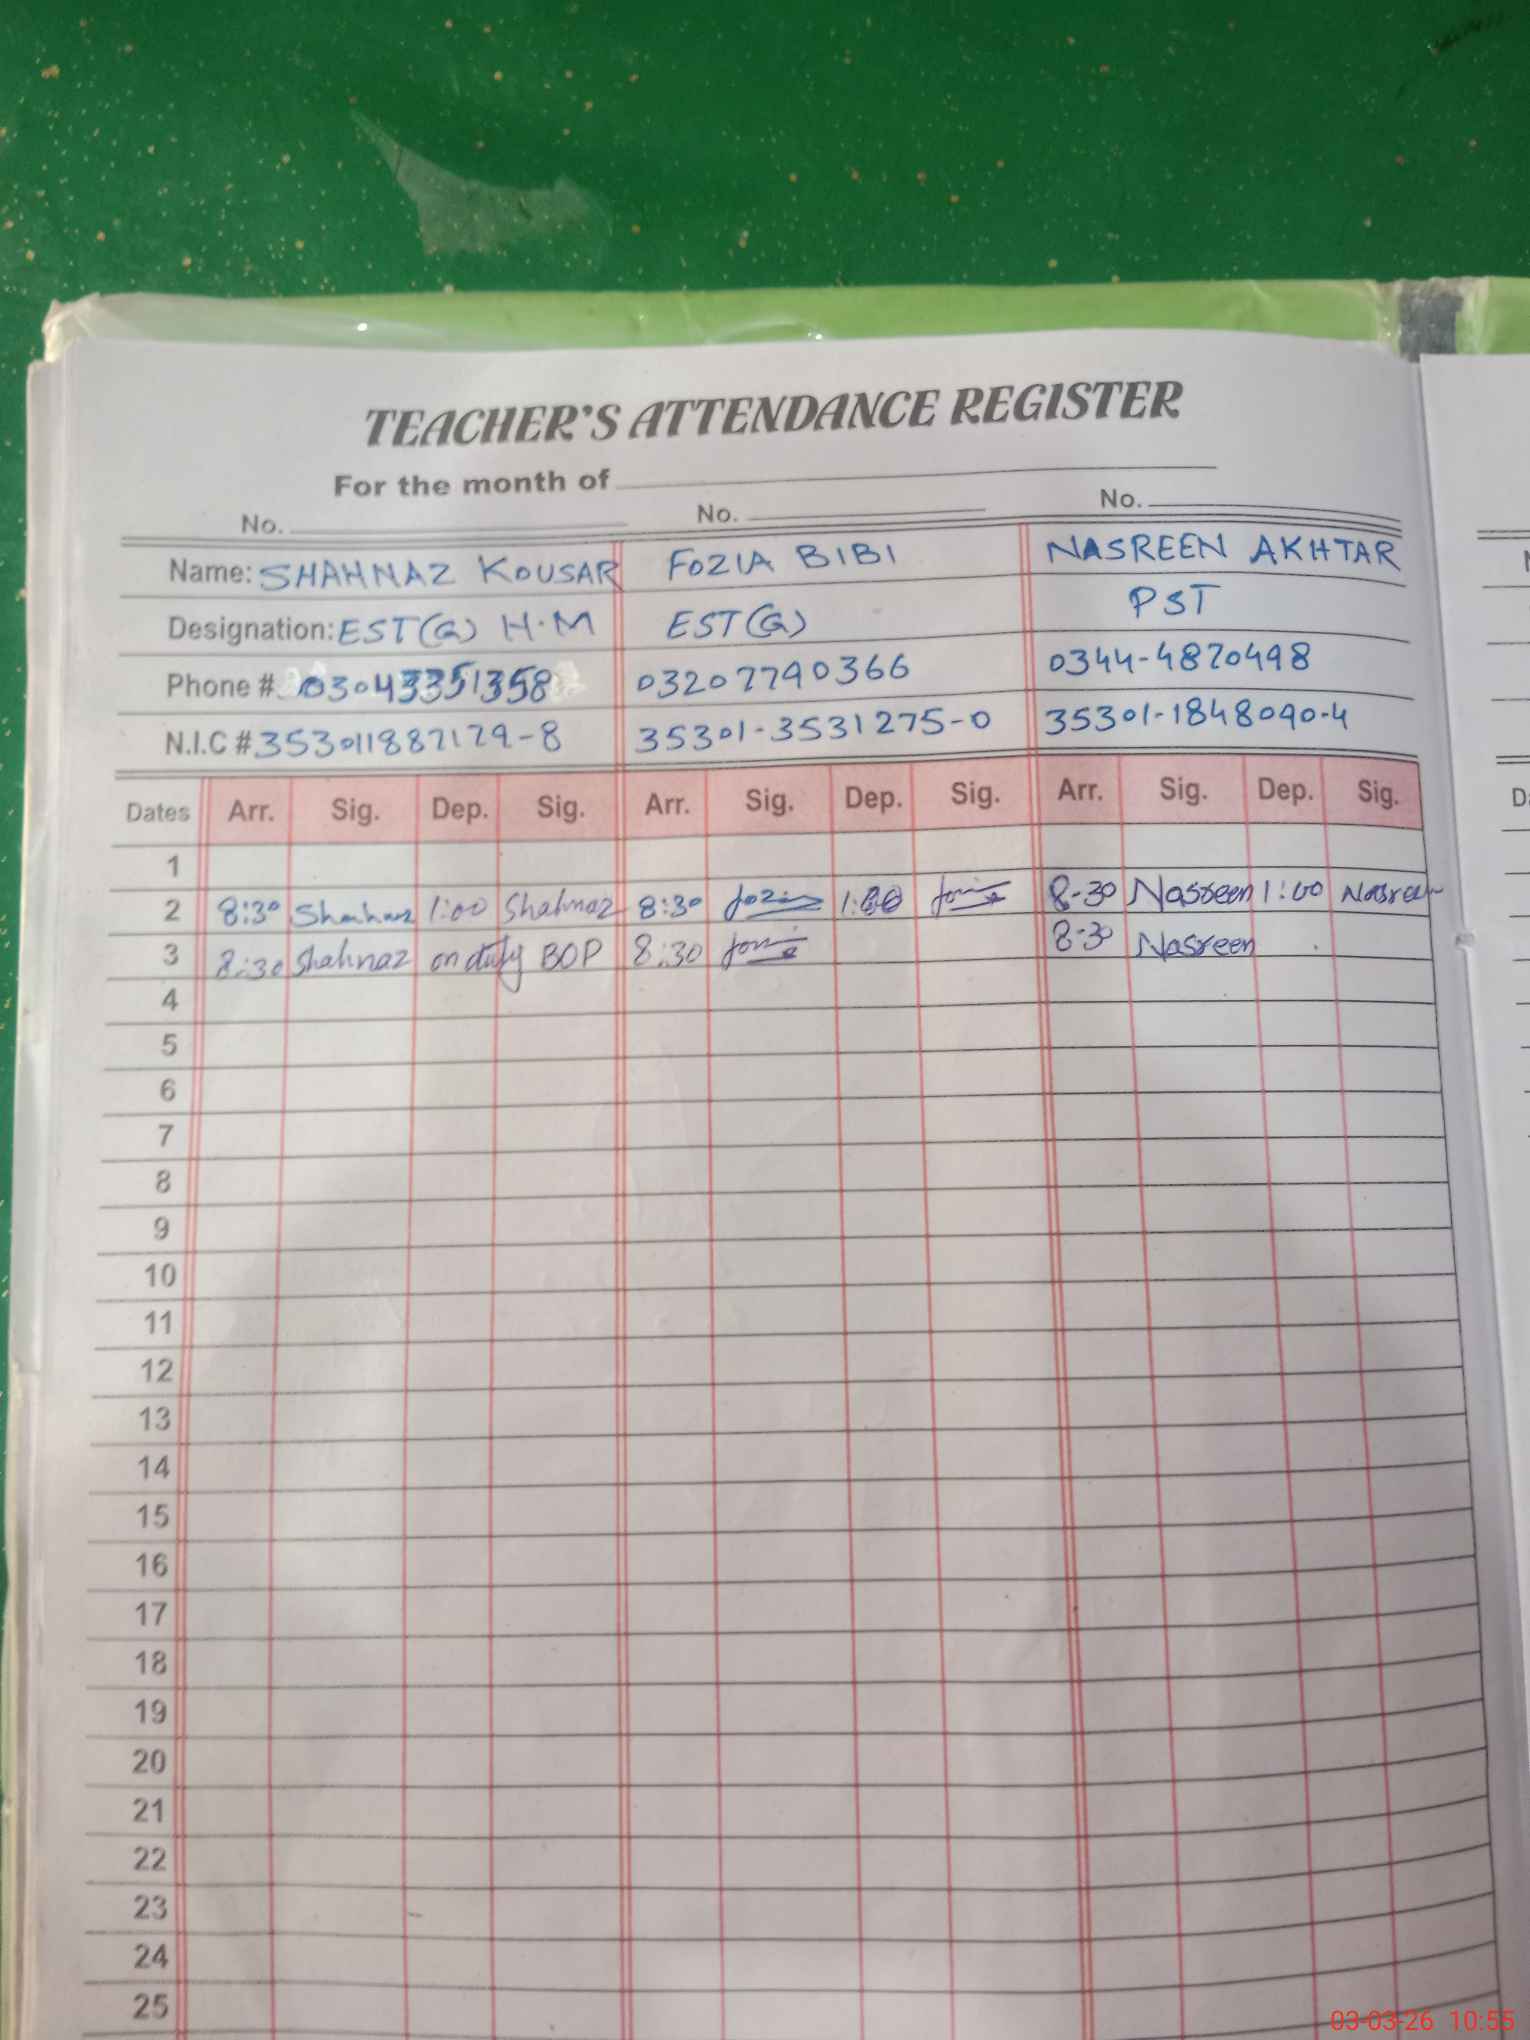 TEACHER'S ATTENDANCE REGISTER
For the month of
No. No. No.
Name: SHAHNAZ KOUSAR FOZIA BIBI NASREEN AKHTAR
Designation: EST(G) H.M EST(G) PST
Phone # 03043351358 03207790366 0344-4870498
N.I.C # 35301-3531275-0 35301-1848090-4
Dates Arr. Sig. Dep. Sig. Arr. Sig. Dep. Sig. Arr. Sig. Dep. Sig.
1
2 8:30 Shahnaz 1:00 Shahnaz 8:30 1:00 8-30 Nasreen 1:00 Nasreen
3 8:30 Shahnaz on duty BOP 8:30 8-30 Nasreen
4
5
6
7
8
9
10
11
12
13
14
15
16
17
18
19
20
21
22
23
24
25
03-03-26 10:55